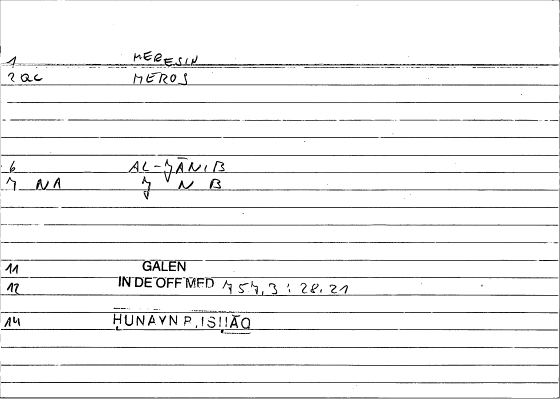 1 MERESIN
2 QC MEROS
6 AL-ǦĀNIB
7 NA Ǧ N B
11 GALEN
12 IN DE OFF MED 757,3 : 28.21
14 ḤUNAYN P. ISḤĀQ